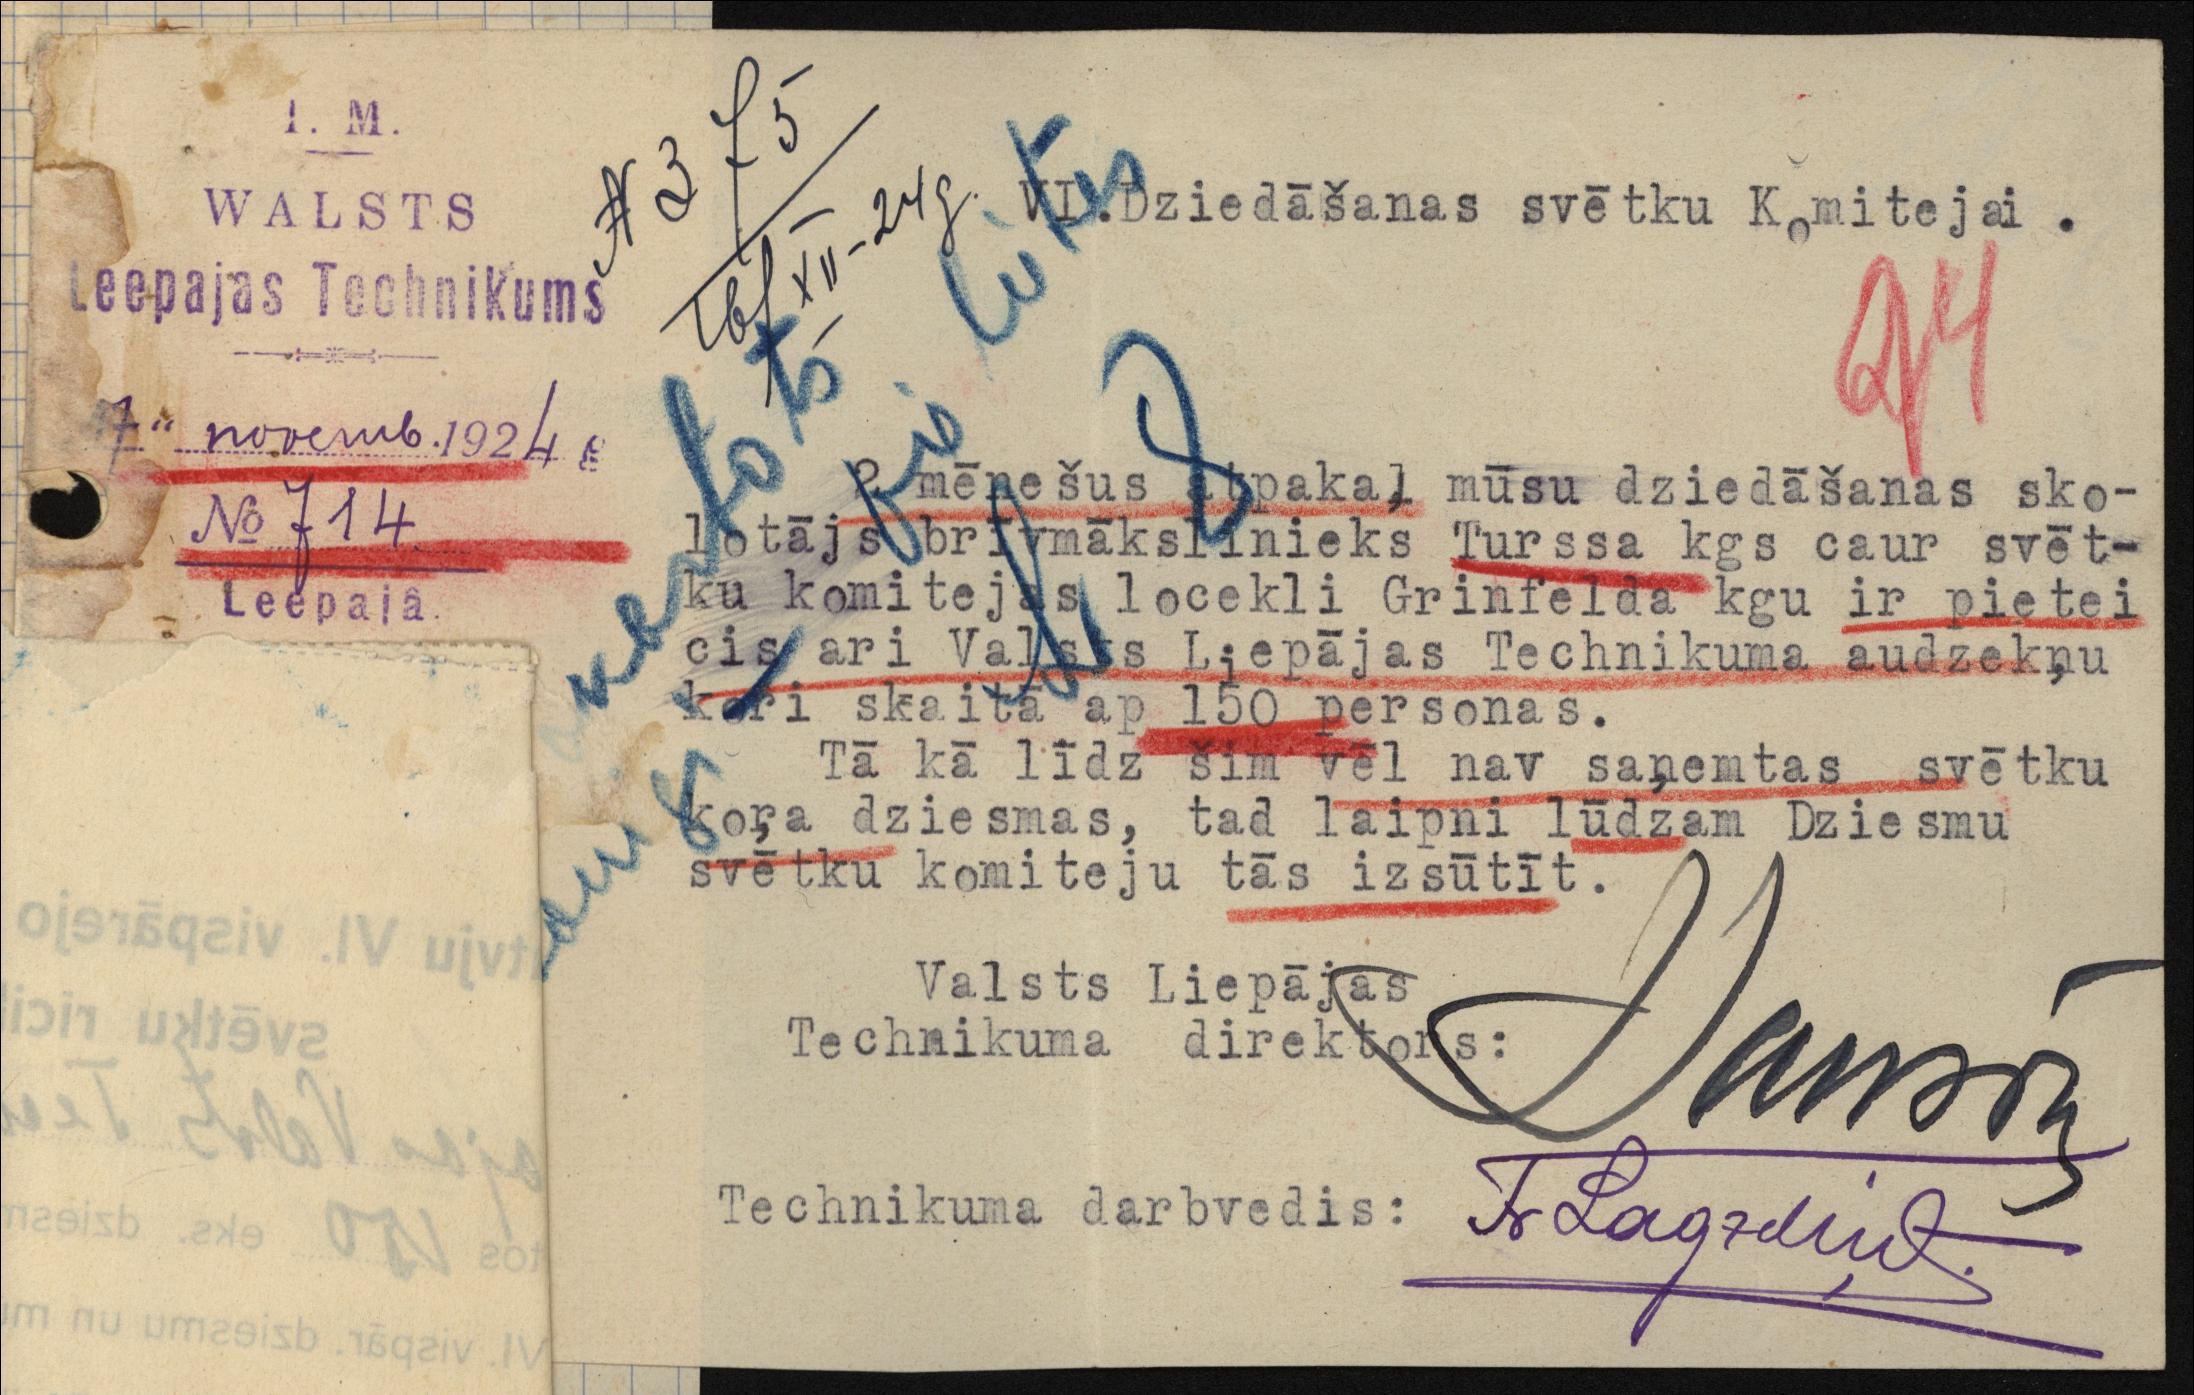 I. M.
WALSTS
Leepajas Technikums
7" novemb. 1924 g
№ 714
Leepajâ.
№ 375
XII-24g.
VI. Dziedāšanas svētku Komitejai .
24
2 mēnešus atpakaļ mūsu dziedāšanas sko-
lotājs brīvmākslinieks Turssa kgs caur svēt-
ku komitejas locekli Grinfelda kgu ir pietei
cis ari Valsts Liepājas Technikuma audzekņu
kori skaitā ap 150 personas.
Tā kā līdz šim vēl nav saņemtas svētku
koŗa dziesmas, tad laipni lūdzam Dziesmu
svētku komiteju tās izsūtīt.
Valsts Liepājas
Technikuma direktors:
Technikuma darbvedis: Fr Lagzdiņ
tvju VI. vispārejo
svētku rīcī
ajas Valsts Tech
tos 150 eks. dziesm
VI. vispār. dziesmu un m